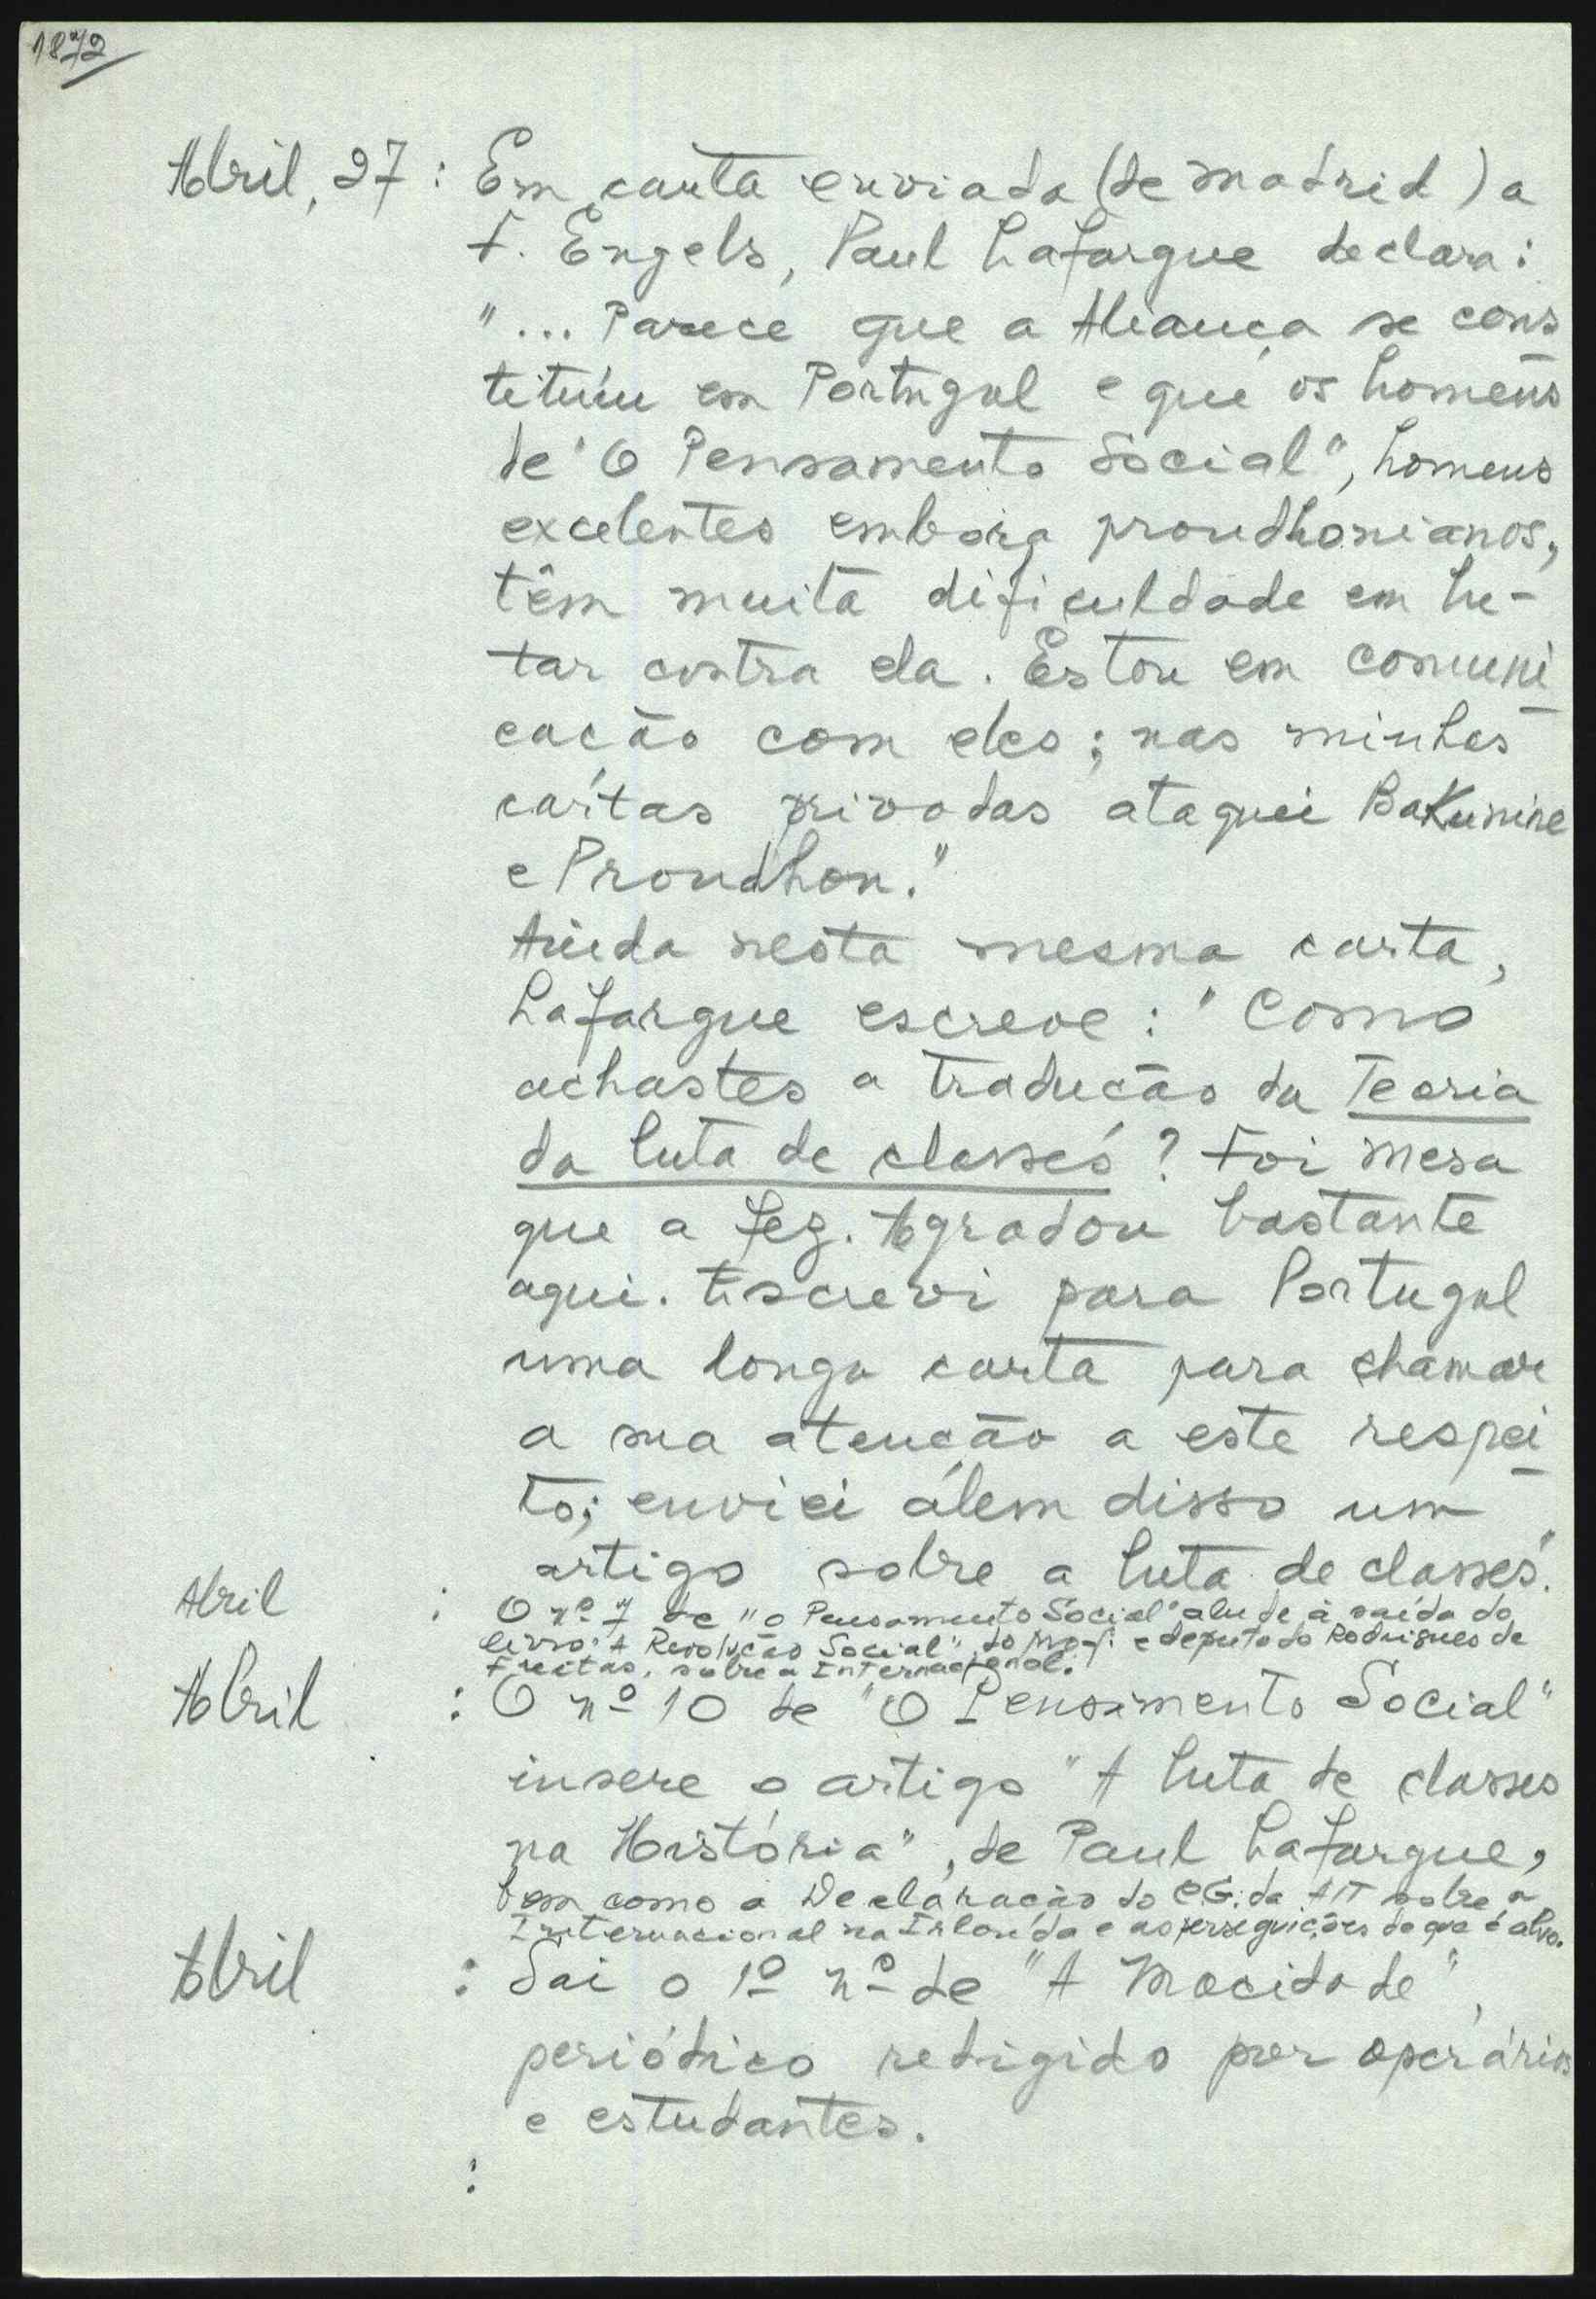 1872
Abril, 27 : Em carta enviada (de Madrid) a
F. Engels, Paul Lafargue declara:
"... Parece que a Aliança se cons
tituíu em Portugal e que os homens
de "O Pensamento Social", homens
excelentes embora proudhonianos,
têm muita dificuldade em lu-
tar contra ela. Estou em comuni
cação com eles; nas minhas
cartas privadas ataquei Bakunine
e Proudhon."
Ainda nesta mesma carta,
Lafargue escreve: "Como
achastes a tradução da Teoria
da luta de classes? Foi Mesa
que a fez. Agradou bastante
aqui. Escrevi para Portugal
uma longa carta para chamar
a sua atenção a este respei
to; enviei álem disso um
artigo sobre a luta de classes".
Abril : O nº 7 de "O Pensamento Social" alude à saída do
livro "A Revolução Social", do prof. e deputado Rodrigues de
Freitas, sobre a Internacional.
Abril : O nº 10 de "O Pensamento Social"
insere o artigo "A luta de classes
na História", de Paul Lafargue,
bem como a Declaração do C.G. da AIT sobre a
Internacional na Irlanda e as perseguições de que é alvo.
Abril : Sai o 1º nº de "A Mocidade",
periódico redigido por operários
e estudantes.
: